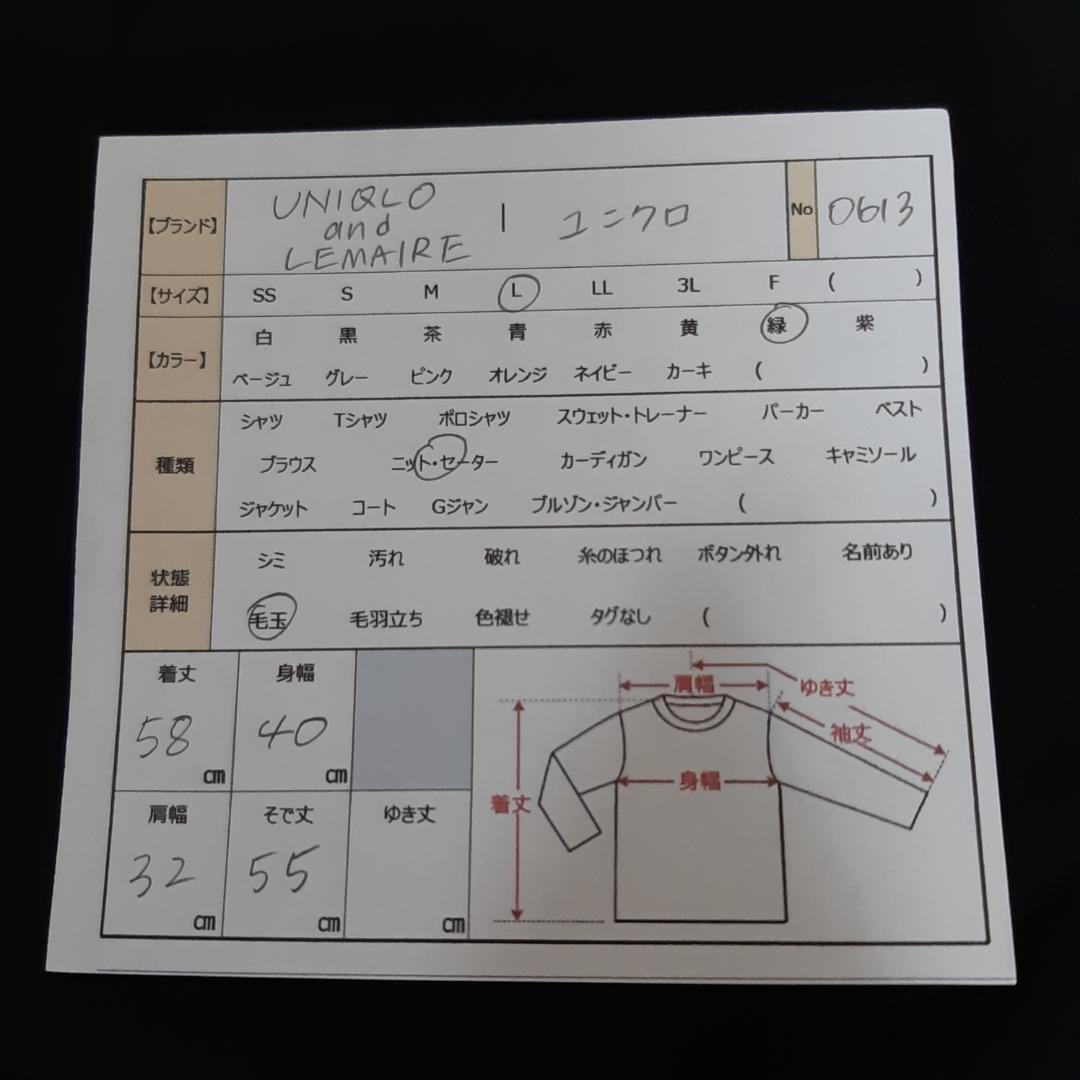 【ブランド】 UNIQLO and LEMAIRE | ユニクロ No 0613
【サイズ】 SS S M L LL 3L F ( )
【カラー】 白 黒 茶 青 赤 黄 緑 紫
ベージュ グレー ピンク オレンジ ネイビー カーキ ( )
種類 シャツ Tシャツ ポロシャツ スウェット・トレーナー パーカー ベスト
ブラウス ニット・セーター カーディガン ワンピース キャミソール
ジャケット コート Gジャン ブルゾン・ジャンパー ( )
状態詳細 シミ 汚れ 破れ 糸のほつれ ボタン外れ 名前あり
毛玉 毛羽立ち 色褪せ タグなし ( )
着丈 身幅
58 cm 40 cm
肩幅 そで丈 ゆき丈
32 cm 55 cm cm
肩幅 ゆき丈
袖丈
着丈 身幅